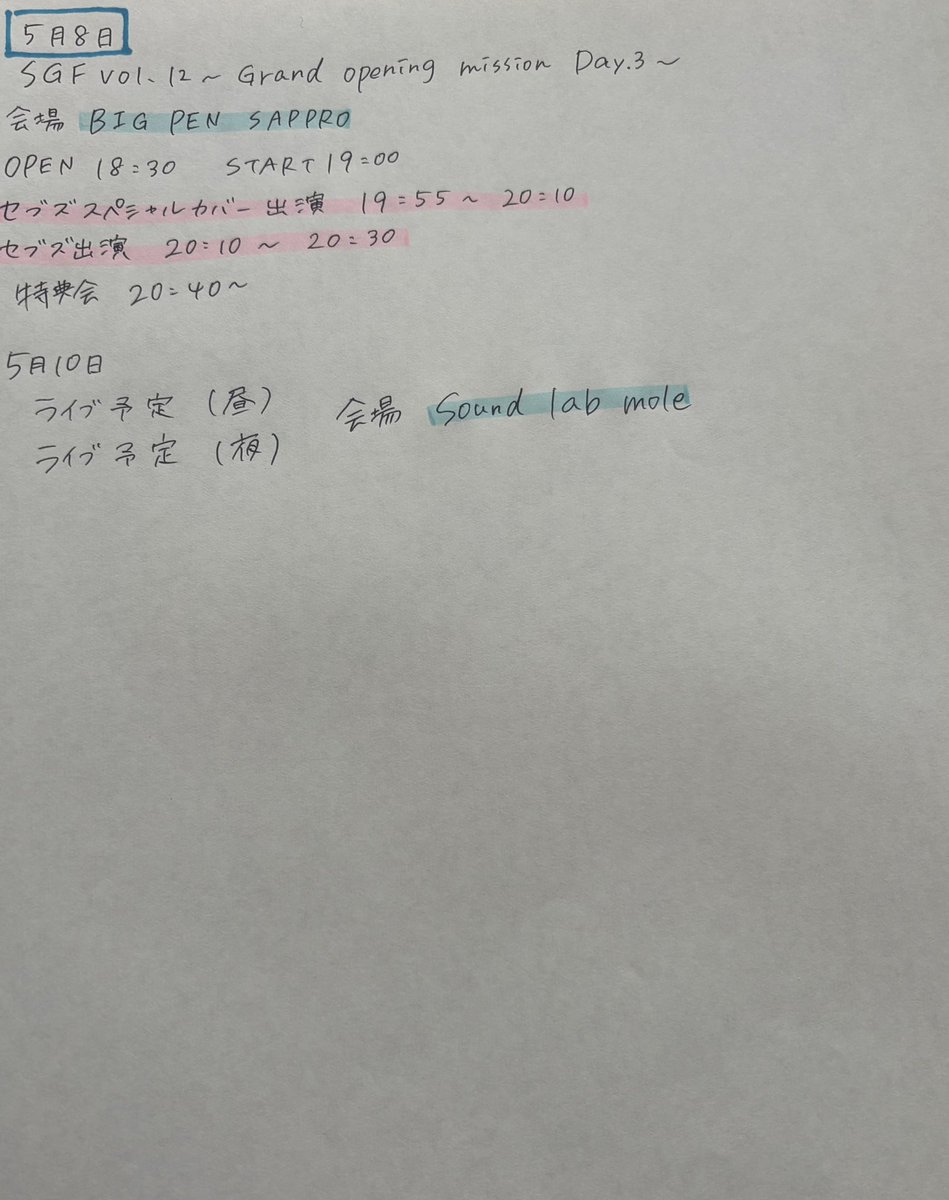 5月8日
SGF vol.12～Grand opening mission Day.3～
会場 BIG PEN SAPPRO
OPEN 18:30 START 19:00
セブズスペシャルカバー出演 19:55～20:10
セブズ出演 20:10～20:30
特典会 20:40～
5月10日
ライブ予定（昼） 会場 Sound lab mole
ライブ予定（夜）